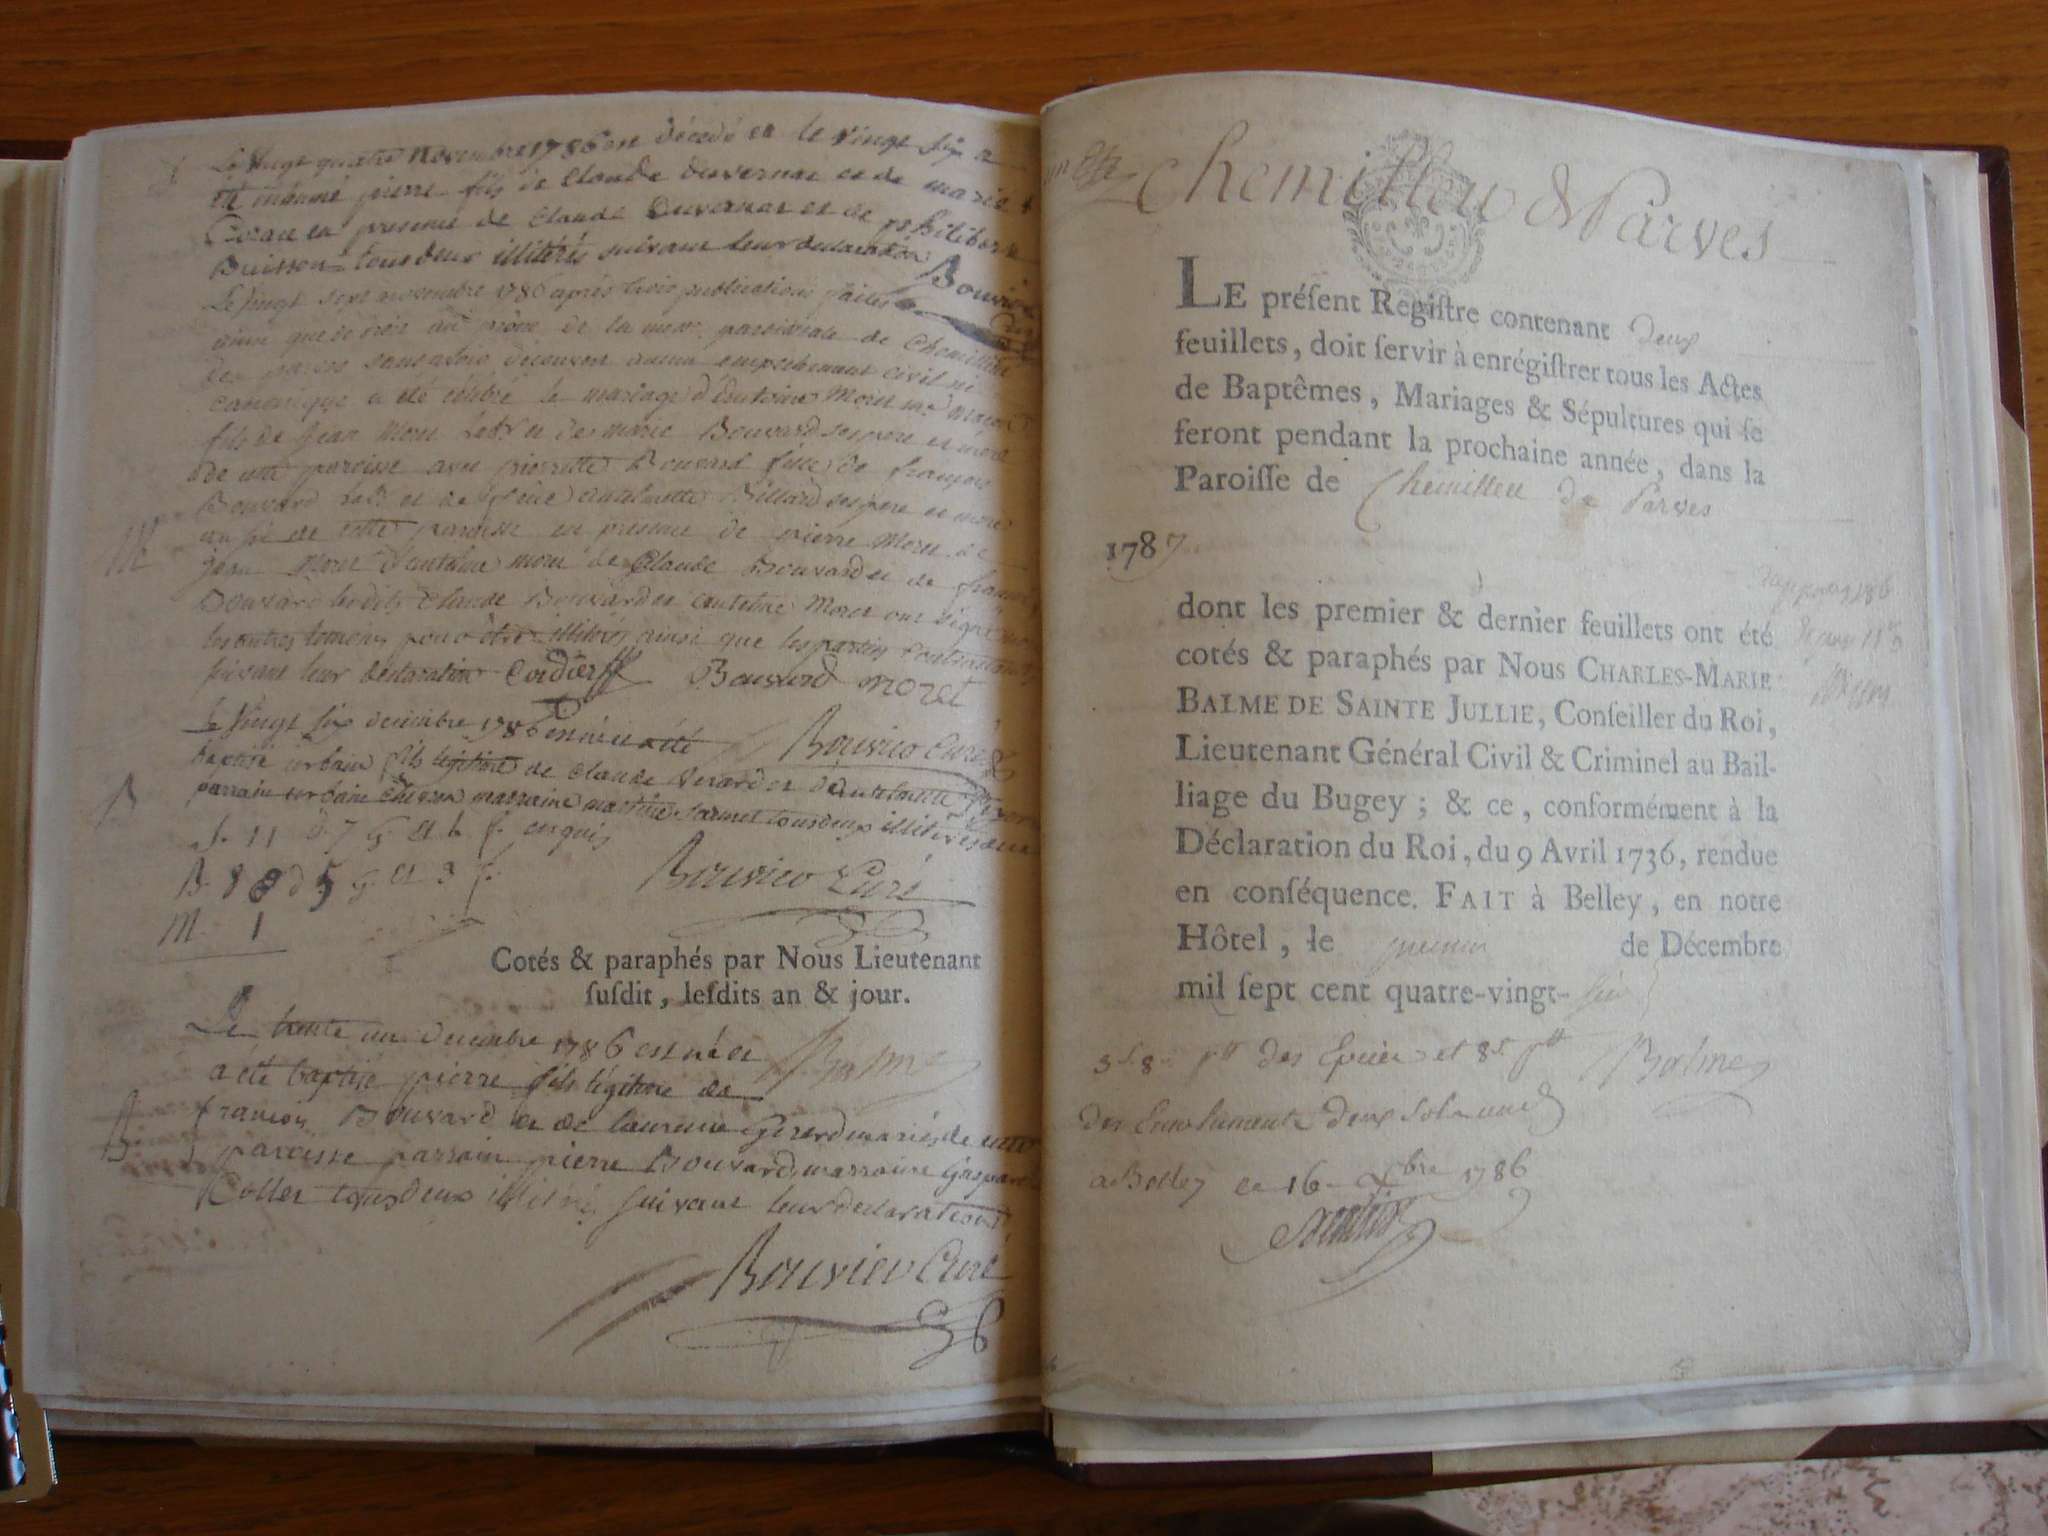 Le vingt quatre novembre 1786 est décédé et le vingt six a
été inhumé pierre fils de Claude duvernai et de marie
en presence de Claude Duvernai et de philibert
Buisson tous deux illitérés suivant leur declaration Bouvier
Curé
Le vingt sept novembre 1786 après trois publications faites
au prône de la messe paroissiale de Chemillieu
de parves sans avoir découvert aucun empechement civil ni
canonique a été célébré le mariage d'Antoine Moret
fils de Jean Moret et de marie Bouvard ses pere et mere
de cette paroisse avec pierrette Bouvard fille de françois
Bouvard et de Billiard ses pere et mere
aussi de cette paroisse en presence de pierre Moret de
jean Moret d'antelme moret de Claude Bouvard et de françois
Bouvard lesdits Claude Bouvard et antelme Moret ont signé
les autres temoins pour être illitérés ainsi que les parties contractantes
suivant leur declaration Cordier Bouvard moret
Bouvier Curé
Le vingt six decembre 1786 est né et a été
baptisé urbain fils légitime de Claude et d'antelmette
parrain urbain marraine tous deux illitérés
M
B
S. 11 d 7 g et 4 f.
B. 8 d 5 g et 3 f.
M. 1
Bouvier Curé
Cotés & paraphés par Nous Lieutenant
susdit, lesdits an & jour.
Balme
Le trente un decembre 1786 est né et
a été baptisé pierre fils légitime de
françois Bouvard et de laurence Gerard mariés de cette
paroisse parrain pierre Bouvard, marraine Gasparde
Collet tous deux illitérés suivant leur declaration
B
Bouvier Curé
Chemillieu & Parves
LE préſent Regiſtre contenant deux
feuillets, doit ſervir à enrégiſtrer tous les Actes
de Baptêmes, Mariages & Sépultures qui ſe
feront pendant la prochaine année, dans la
Paroiſſe de Chemillieu de Parves
1787
dont les premier & dernier feuillets ont été
cotés & paraphés par Nous CHARLES-MARIE
BALME DE SAINTE JULLIE, Conſeiller du Roi,
Lieutenant Général Civil & Criminel au Bail-
liage du Bugey ; & ce, conformément à la
Déclaration du Roi, du 9 Avril 1736, rendue
en conſéquence. FAIT à Belley, en notre
Hôtel, le premier de Décembre
mil ſept cent quatre-vingt-six
des Epices et 8s Balme
des deux sols
a Belley ce 16 Xbre 1786